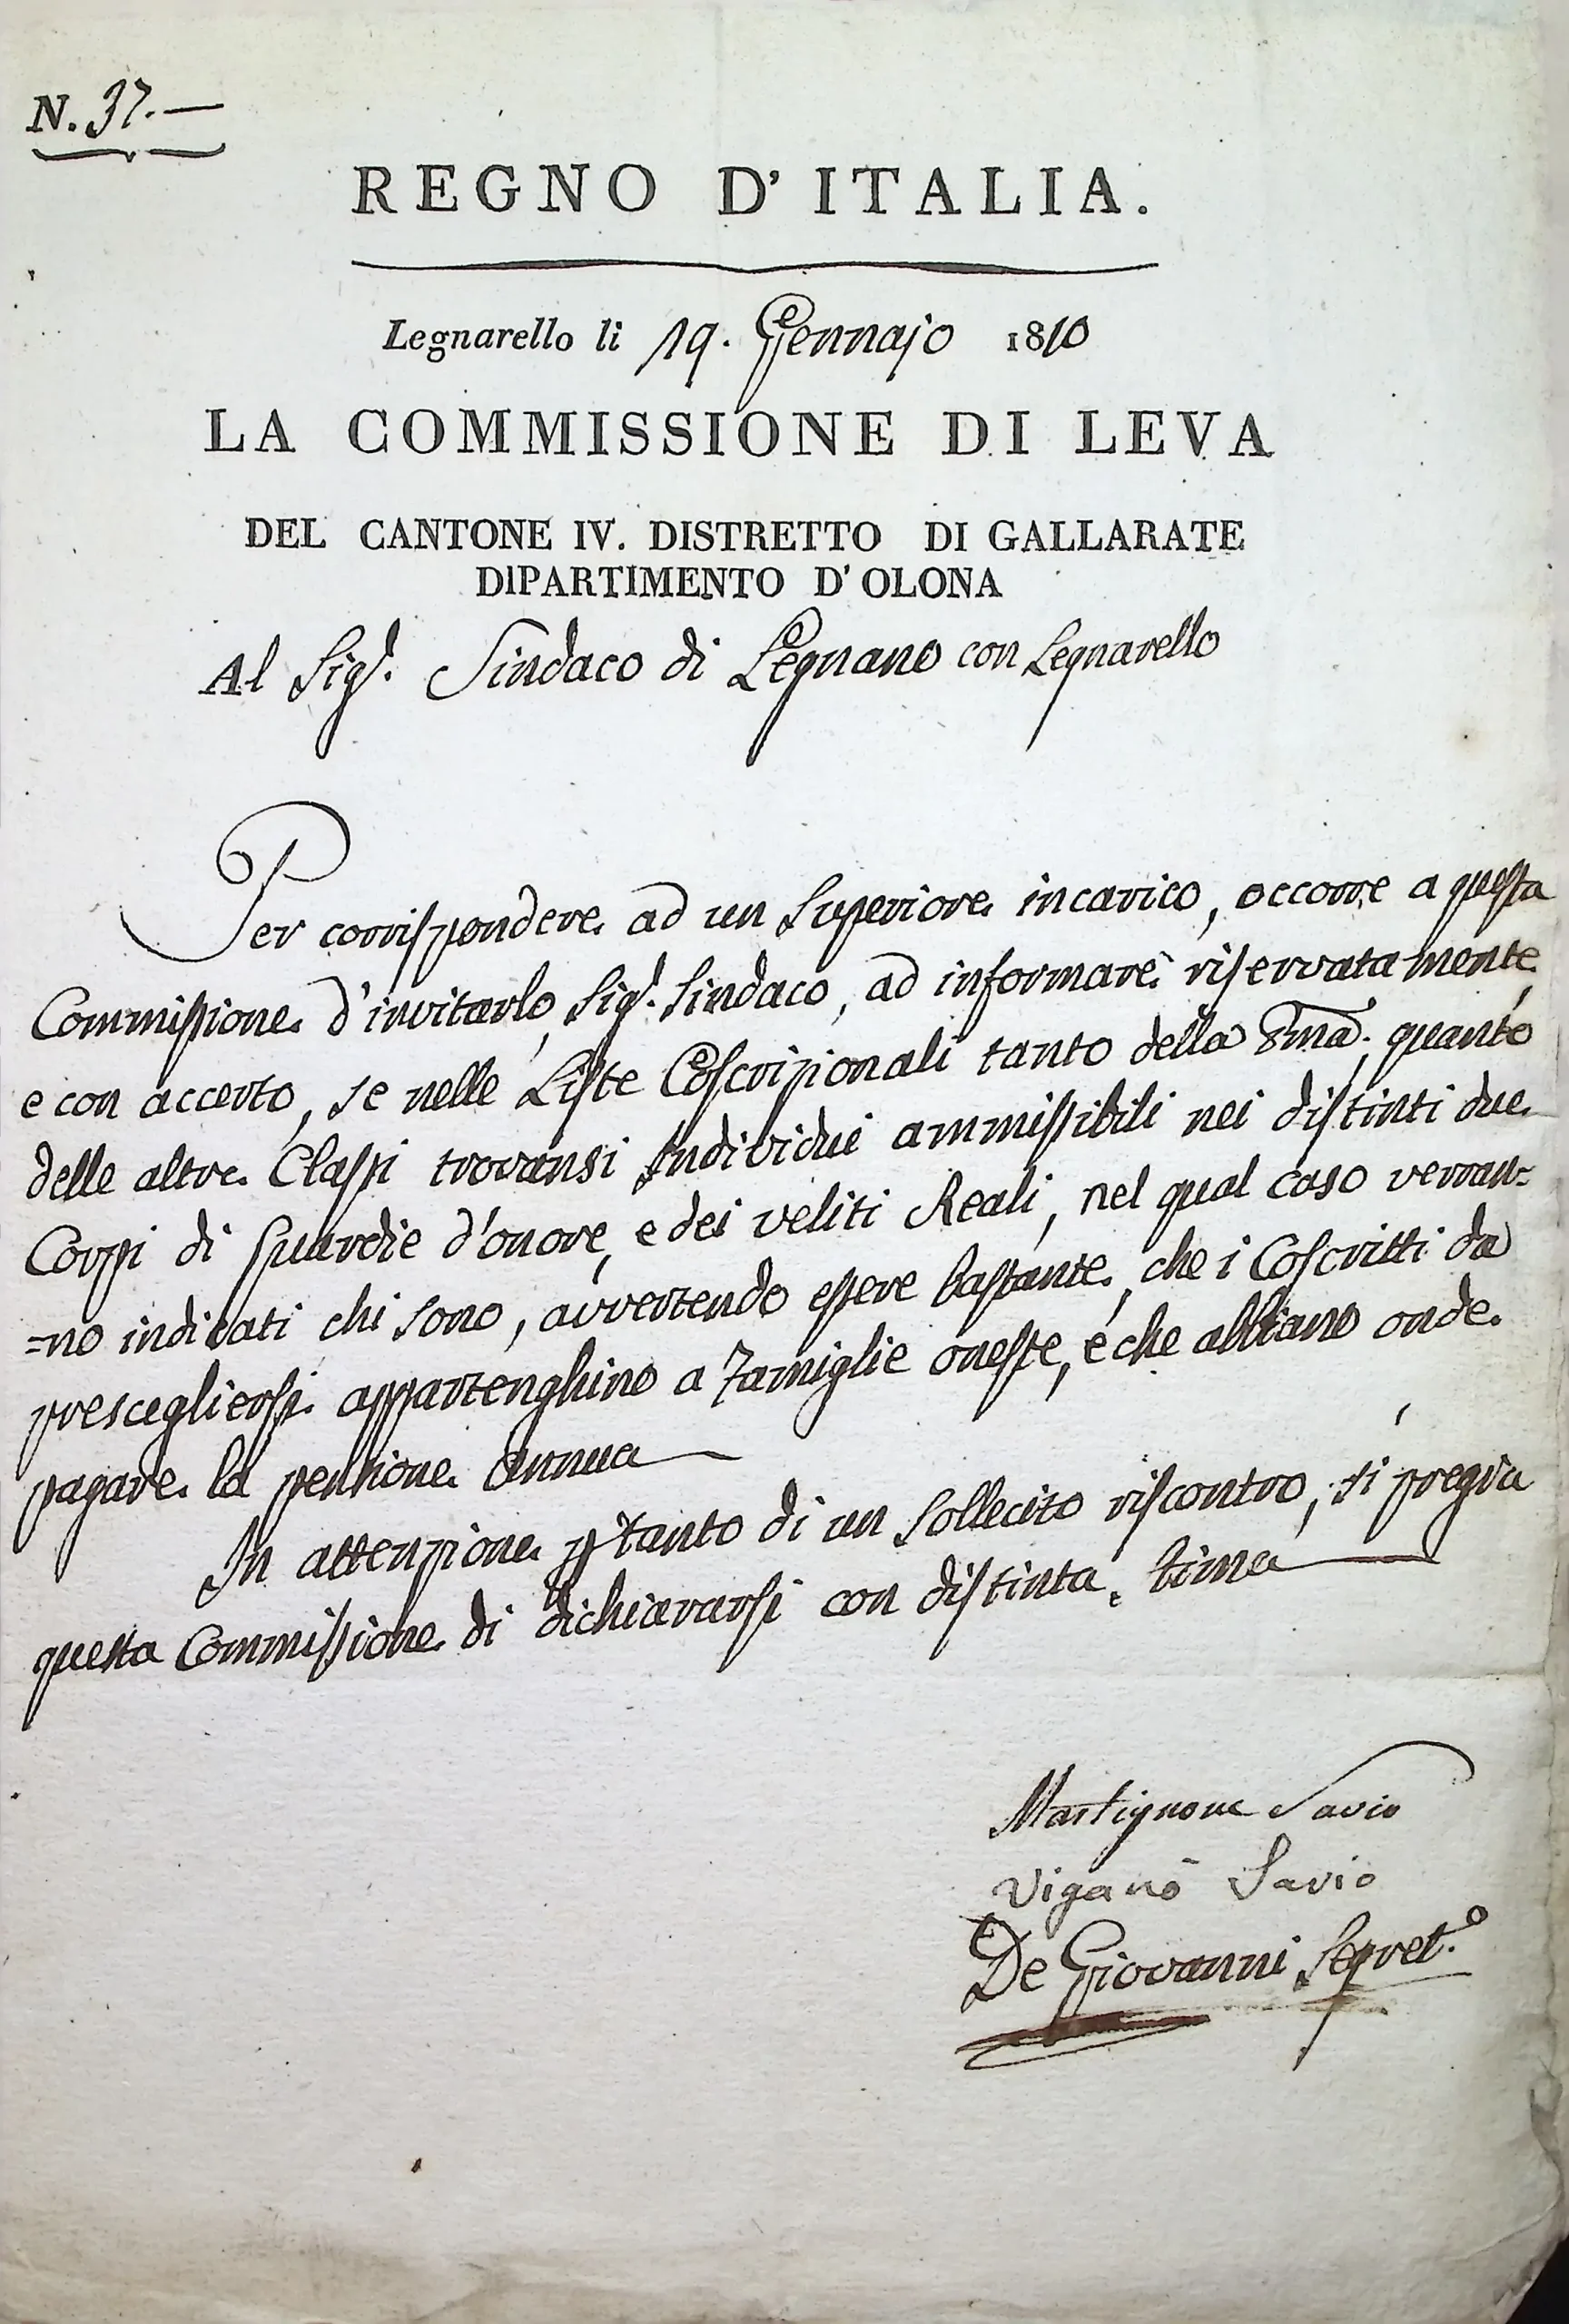 N. 37.—
REGNO D'ITALIA.
Legnarello li 19. Gennajo 1810
LA COMMISSIONE DI LEVA
DEL CANTONE IV. DISTRETTO DI GALLARATE
DIPARTIMENTO D'OLONA
Al Sig.r Sindaco di Legnano con Legnarello
Per corrispondere ad un Superiore incarico, occorre a questa
Commissione d'invitarlo, Sig.r Sindaco, ad informare riservatamente
e con accerto, se nelle Liste Coscrizionali tanto della quanto
delle altre Classi trovansi Individui ammissibili nei distinti due
Corpi di Guardie d'onore, e dei veliti Reali, nel qual caso verran=
=no indicati chi sono, avvertendo essere bastante, che i Coscritti da
prescegliersi appartenghino a Famiglie oneste, e che abbiano onde
pagare la pensione annua—
In attenzione ptanto di un sollecito riscontro, si pregia
questa Commissione di dichiararsi con distinta stima—
Martignone Savio
Viganò Savio
De Giovanni Segret.o